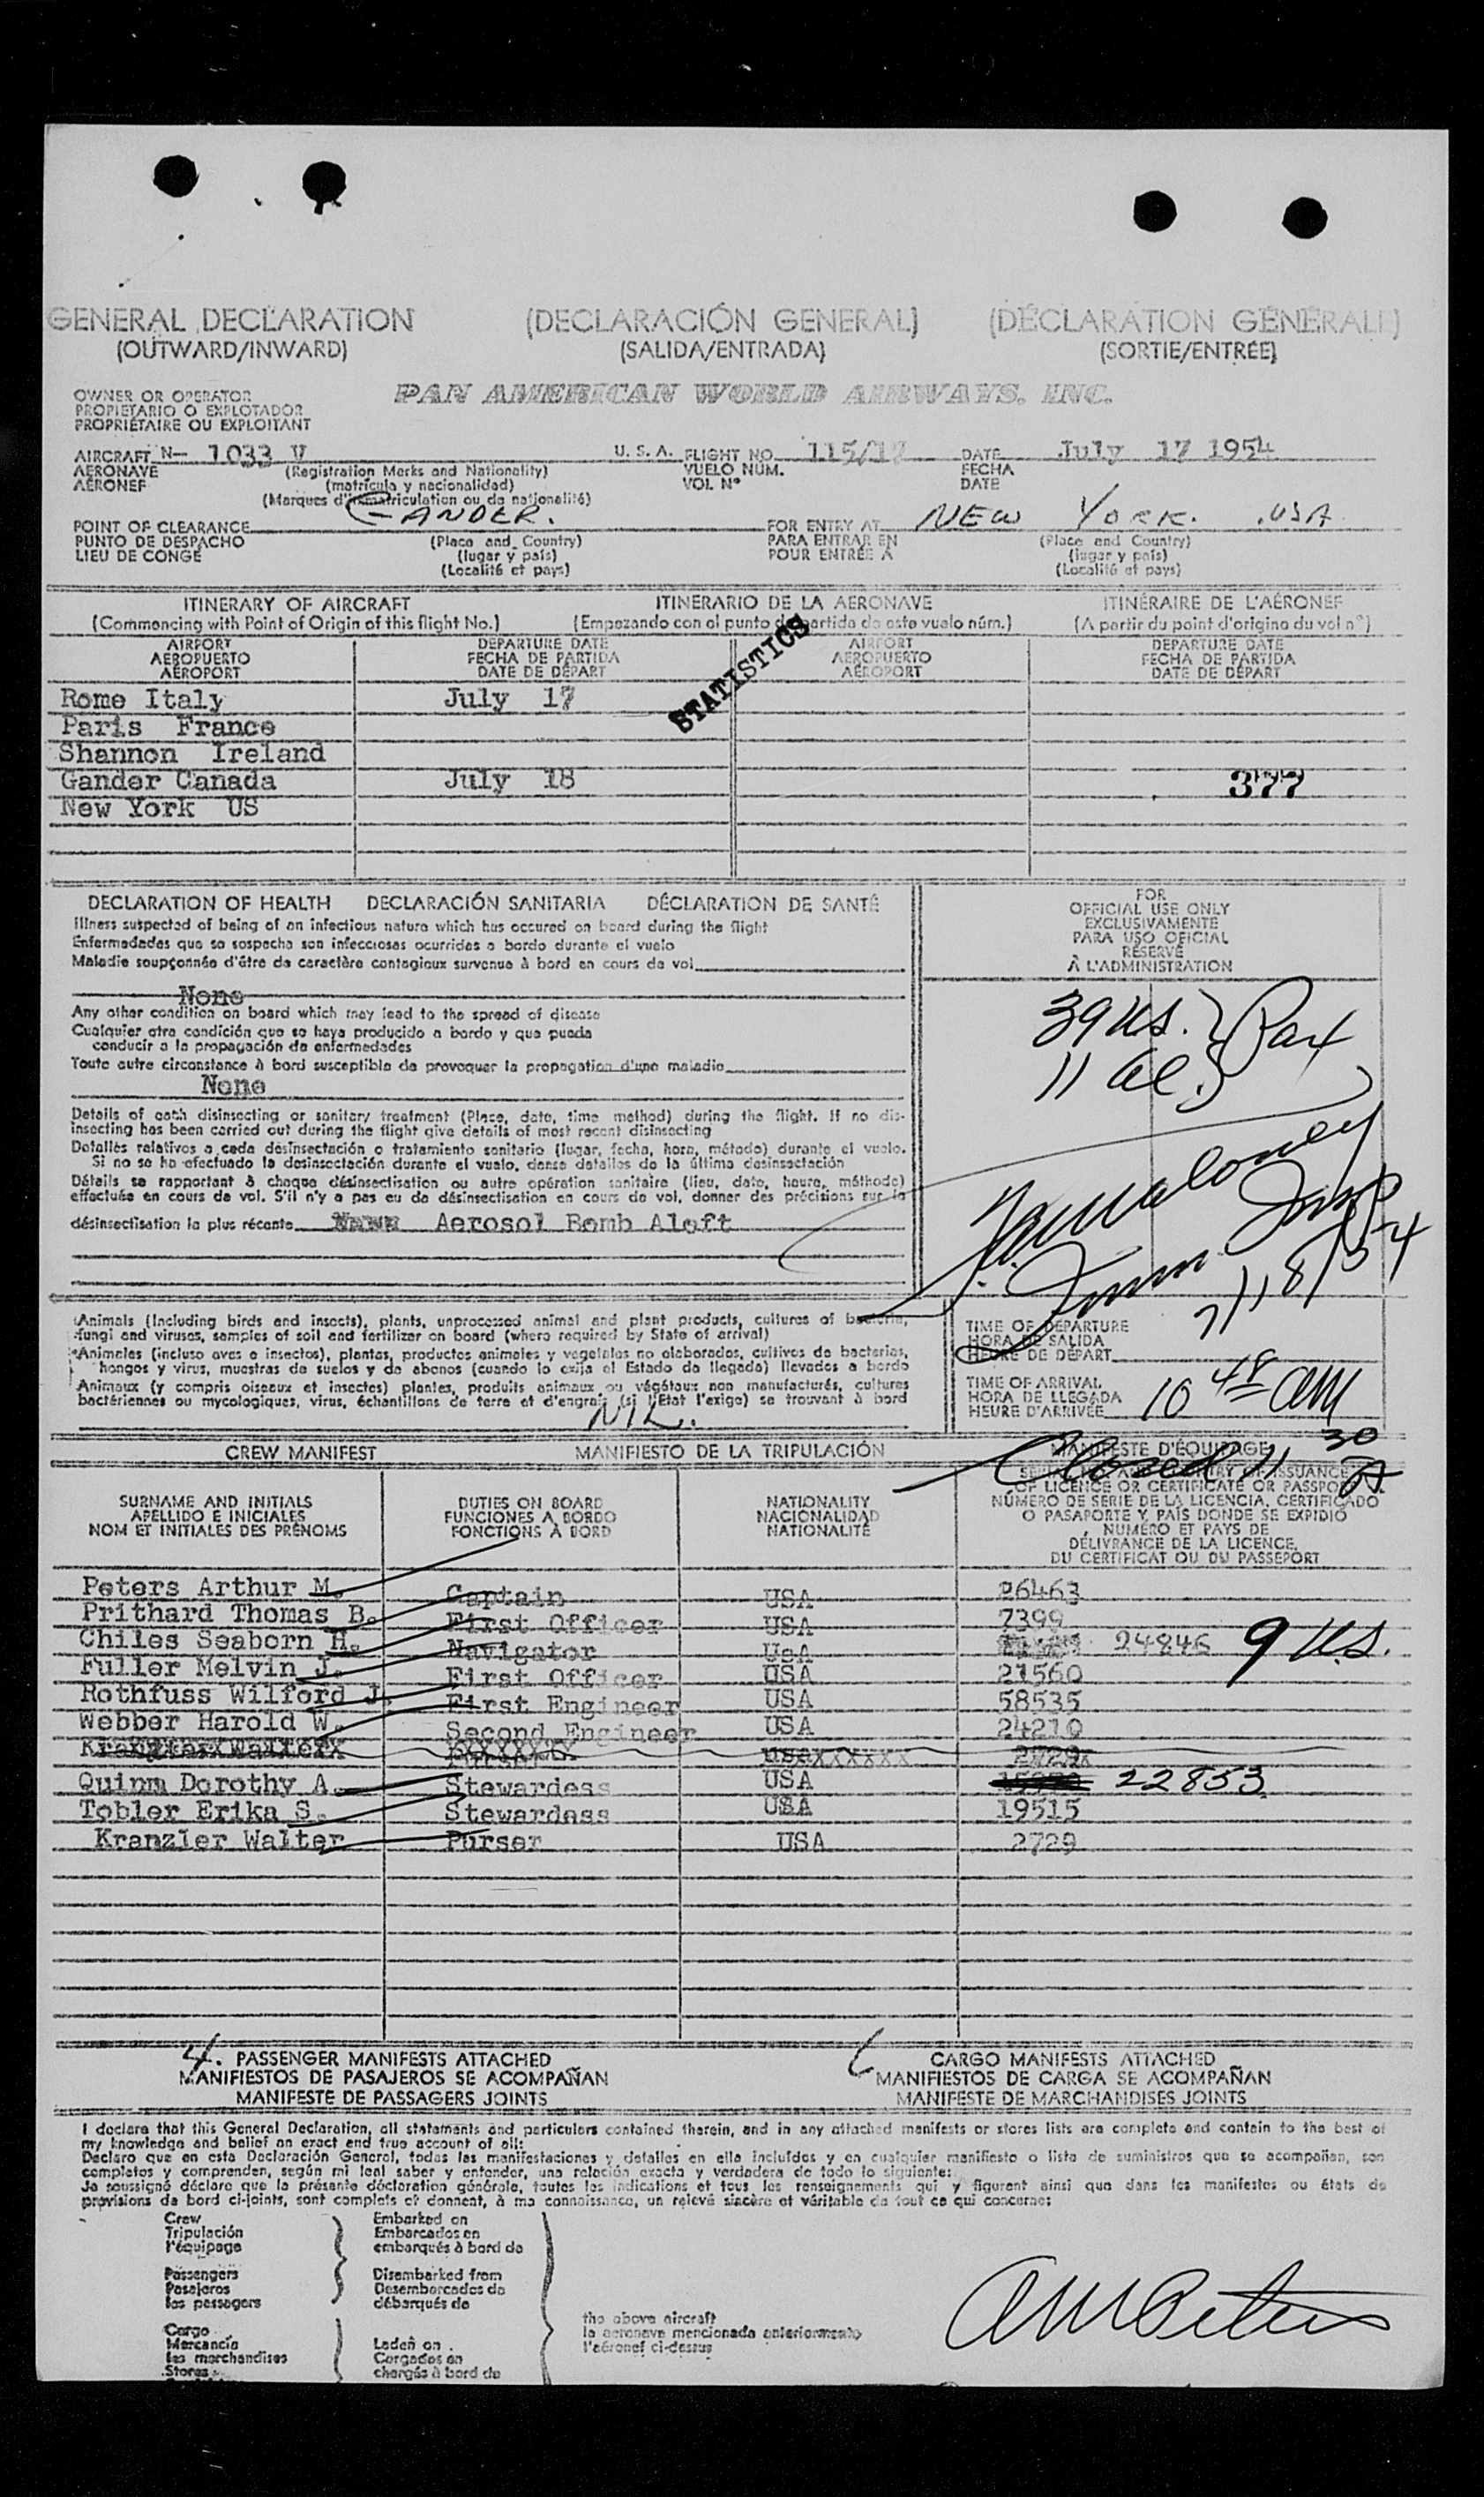 GENERAL DECLARATION (DECLARACIÓN GENERAL) (DÉCLARATION GÉNÉRALE)
(OUTWARD/INWARD) (SALIDA/ENTRADA) (SORTIE/ENTRÉE)
OWNER OR OPERATOR PAN AMERICAN WORLD AIRWAYS, INC.
PROPIETARIO O EXPLOTADOR
PROPRIÉTAIRE OU EXPLOITANT
AIRCRAFT N- 1033 V U. S. A. FLIGHT NO. 115/17 DATE July 17 1954
AERONAVE (Registration Marks and Nationality) VUELO NÚM. FECHA
AÉRONEF (matrícula y nacionalidad) VOL Nº DATE
(Marques d'immatriculation ou de nationalité)
POINT OF CLEARANCE GANDER. FOR ENTRY AT NEW YORK. .USA
PUNTO DE DESPACHO (Place and Country) PARA ENTRAR EN (Place and Country)
LIEU DE CONGÉ (lugar y país) POUR ENTRÉE À (lugar y país)
(Localité et pays) (Localité et pays)
ITINERARY OF AIRCRAFT ITINERARIO DE LA AERONAVE ITINÉRAIRE DE L'AÉRONEF
(Commencing with Point of Origin of this flight No.) (Empezando con el punto de partida de este vuelo núm.) (A partir du point d'origine du vol nº)
AIRPORT DEPARTURE DATE AIRPORT DEPARTURE DATE
AEROPUERTO FECHA DE PARTIDA AEROPUERTO FECHA DE PARTIDA
AÉROPORT DATE DE DÉPART AÉROPORT DATE DE DÉPART
STATISTICS
Rome Italy July 17
Paris France
Shannon Ireland
Gander Canada July 18 377
New York US
DECLARATION OF HEALTH DECLARACIÓN SANITARIA DÉCLARATION DE SANTÉ
Illness suspected of being of an infectious nature which has occured on board during the flight
Enfermedades que se sospecha son infecciosas ocurridas a bordo durante el vuelo
Maladie soupçonnée d'être de caractère contagieux survenue à bord en cours de vol
None
Any other condition on board which may lead to the spread of disease
Cualquier otra condición que se haya producido a bordo y que pueda
conducir a la propagación de enfermedades
Toute autre circonstance à bord susceptible de provoquer la propagation d'une maladie
None
Details of each disinsecting or sanitary treatment (Place, date, time method) during the flight. If no dis-
insecting has been carried out during the flight give details of most recent disinsecting
Detalles relativos a cada desinsectación o tratamiento sanitario (lugar, fecha, hora, método) durante el vuelo.
Si no se ha efectuado la desinsectación durante el vuelo, dense detalles de la última desinsectación
Détails se rapportant à chaque désinsectisation ou autre opération sanitaire (lieu, date, heure, méthode)
effectuée en cours de vol. S'il n'y a pas eu de désinsectisation en cours de vol, donner des précisions sur la
désinsectisation la plus récente Aerosol Bomb Aloft
FOR
OFFICIAL USE ONLY
EXCLUSIVAMENTE
PARA USO OFICIAL
RÉSERVÉ
À L'ADMINISTRATION
39 US. } Pax
11 al.
Insp
7/18/54
Animals (Including birds and insects), plants, unprocessed animal and plant products, cultures of bacteria,
fungi and viruses, samples of soil and fertilizer on board (where required by State of arrival)
Animales (incluso aves e insectos), plantas, productos animales y vegetales no elaborados, cultivos de bacterias,
hongos y virus, muestras de suelos y de abonos (cuando lo exija el Estado de llegada) llevados a bordo
Animaux (y compris oiseaux et insectes) plantes, produits animaux ou végétaux non manufacturés, cultures
bactériennes ou mycologiques, virus, échantillons de terre et d'engrais (si l'Etat l'exige) se trouvant à bord
NIL.
TIME OF DEPARTURE
HORA DE SALIDA
HEURE DE DÉPART
TIME OF ARRIVAL
HORA DE LLEGADA
HEURE D'ARRIVÉE 10 48 AM
Closed 11 30 A
CREW MANIFEST MANIFIESTO DE LA TRIPULACIÓN MANIFESTE D'ÉQUIPAGE
SURNAME AND INITIALS DUTIES ON BOARD NATIONALITY OF LICENCE OR CERTIFICATE OR PASSPORT
APELLIDO E INICIALES FUNCIONES A BORDO NACIONALIDAD NÚMERO DE SERIE DE LA LICENCIA, CERTIFICADO
NOM ET INITIALES DES PRÉNOMS FONCTIONS À BORD NATIONALITÉ O PASAPORTE Y PAÍS DONDE SE EXPIDIÓ
NUMÉRO ET PAYS DE
DÉLIVRANCE DE LA LICENCE,
DU CERTIFICAT OU DU PASSEPORT
Peters Arthur M. Captain USA 26463
Prithard Thomas B. First Officer USA 7399
Chiles Seaborn H. Navigator UsA 24846 9 U.S.
Fuller Melvin J. First Officer USA 21560
Rothfuss Wilford J. First Engineer USA 58535
Webber Harold W. Second Engineer USA 24210
Quinn Dorothy A. Stewardess USA 22853
Tobler Erika S. Stewardess USA 19515
Kranzler Walter Purser USA 2729
4. PASSENGER MANIFESTS ATTACHED CARGO MANIFESTS ATTACHED
MANIFIESTOS DE PASAJEROS SE ACOMPAÑAN MANIFIESTOS DE CARGA SE ACOMPAÑAN
MANIFESTE DE PASSAGERS JOINTS MANIFESTE DE MARCHANDISES JOINTS
I declare that this General Declaration, all statements and particulars contained therein, and in any attached manifests or stores lists are complete and contain to the best of
my knowledge and belief an exact and true account of all:
Declaro que en esta Declaración General, todas las manifestaciones y detalles en ella incluídos y en cualquier manifiesto o lista de suministros que se acompañan, son
completos y comprenden, según mi leal saber y entender, una relación exacta y verdadera de todo lo siguiente:
Je soussigné déclare que la présente déclaration générale, toutes les indications et tous les renseignements qui y figurent ainsi que dans les manifestes ou états de
provisions de bord ci-joints, sont complets et donnent, à ma connaissance, un relevé sincère et véritable de tout ce qui concerne:
Crew Embarked on
Tripulación Embarcados en
l'équipage embarqués à bord de
Passengers Disembarked from
Pasajeros Desembarcados de
les passagers débarqués de
Cargo the above aircraft
Mercancía Laden on la aeronave mencionada anteriormente
les marchandises Cargados en l'aéronef ci-dessus
Stores chargés à bord de
AM Peters